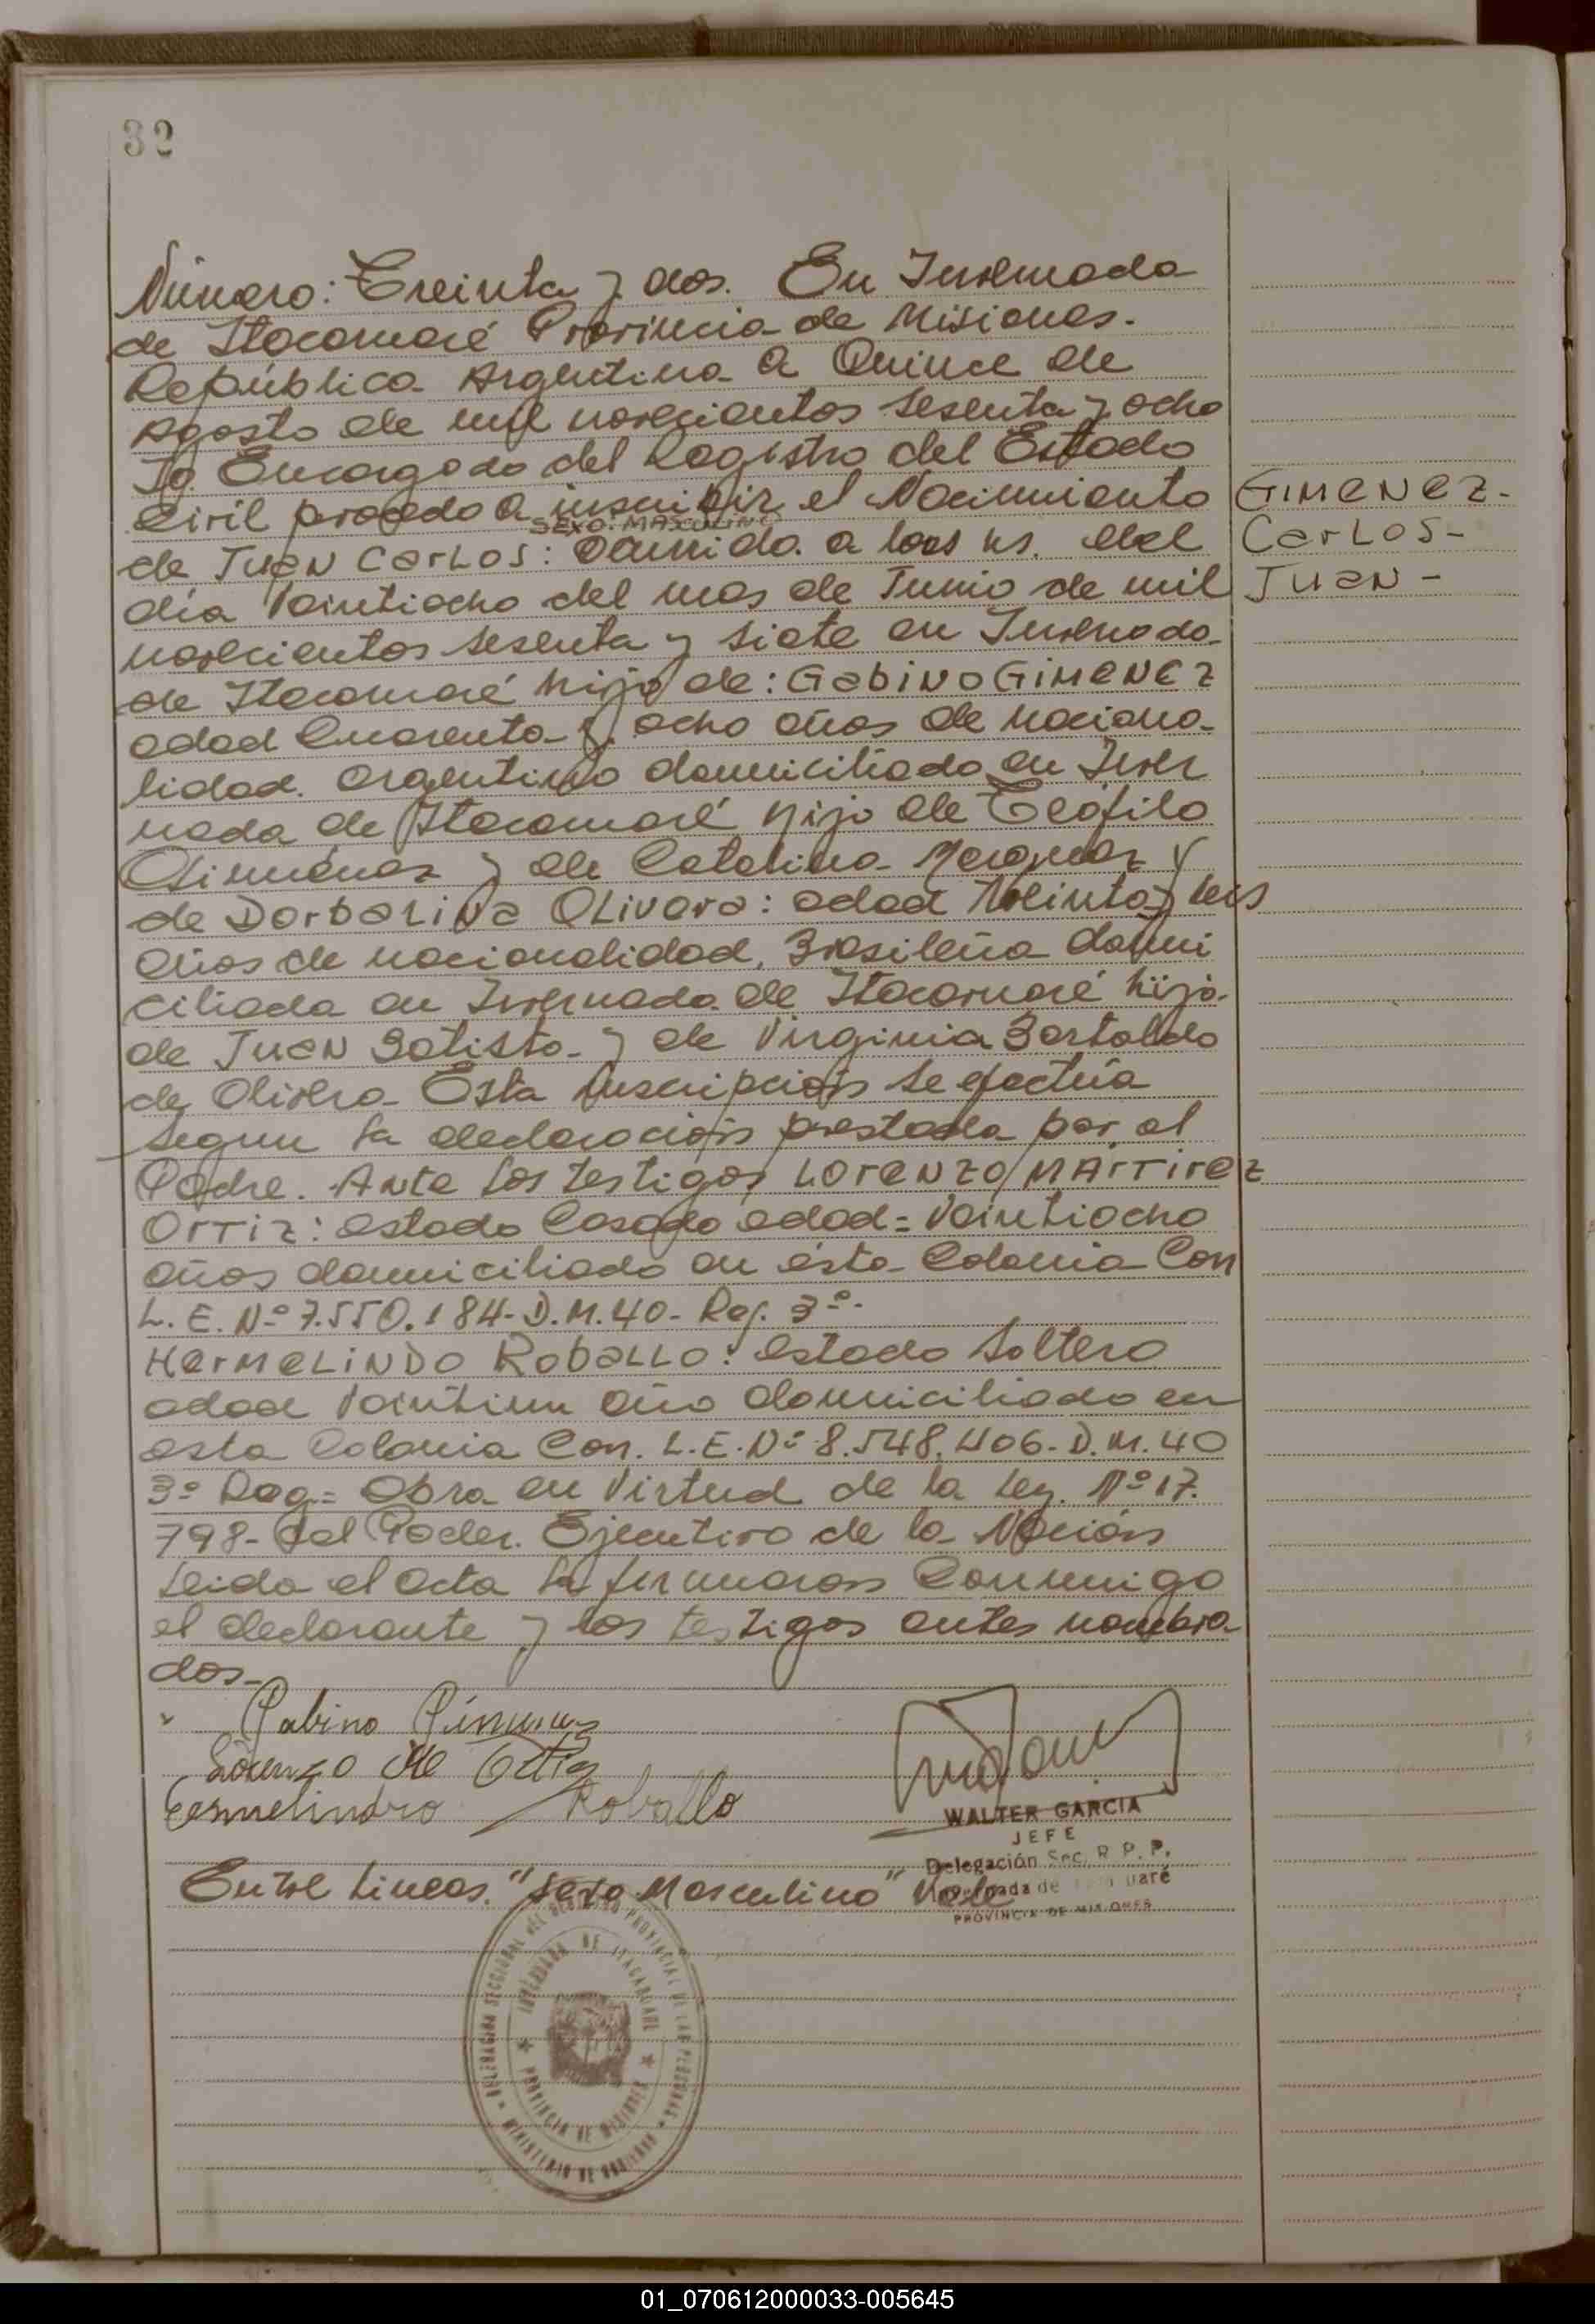 32
Número: Treinta y dos. En Invernada
de Itacaruaré Provincia de Misiones.
República Argentina a Quince de
Agosto de mil novecientos sesenta y ocho
Yo Encargado del Registro del Estado
Civil procedo a inscribir el Nacimiento
SEXO: MASCULINO
de Juan Carlos: Ocurrido a las hs. del
día Veintiocho del mes de Junio de mil
novecientos sesenta y siete en Invernada
de Itacaruaré hijo de: Gabino GIMENEZ
edad Cuarenta y ocho años de naciona-
lidad Argentino domiciliado en Inver
nada de Itacaruaré hijo de Teófilo
Giménez y de Catalina y
de Dorbalina Olivera: edad Treinta y seis
años de nacionalidad, Brasileña domi
ciliada en Invernada de Itacaruaré hija
de Juan Batista y de Virginia Bartoldo
de Olivera Esta Inscripción se efectúa
segun la declaración prestada por el
Padre. Ante los testigos LORENZO MARTIREZ
ORTIZ: estado Casado edad= Veintiocho
años domiciliado en ésta Colonia Con
L. E. Nº 7.550.184- D.M. 40- Reg. 3º-
HERMELINDO ROBALLO: estado Soltero
edad Veintiun año domiciliado en
esta Colonia Con. L.E. Nº 8.548.406- D.M. 40
3º Reg= Obra en Virtud de la Ley. Nº 17.
798- del Poder. Ejecutivo de la Nación
Leida el Acta la firmaron Conmigo
el declarante y los testigos antes nombra-
dos-
GIMENEZ-
Carlos-
Juan-
Gabino Gimenez
Lorenzo M Ortiz
Ermelindro Roballo
WALTER GARCIA
JEFE
Delegación Sec. R. P. P.
Invernada de Itacaruaré
PROVINCIA DE MISIONES
Entre Lineas. "Sexo Masculino" Vale
DELEGACION SECCIONAL DEL REGISTRO PROVINCIAL DE LAS PERSONAS
INVERNADA DE ITACARUARE
PROVINCIA DE MISIONES
MINISTERIO DE GOBIERNO
01_070612000033-005645